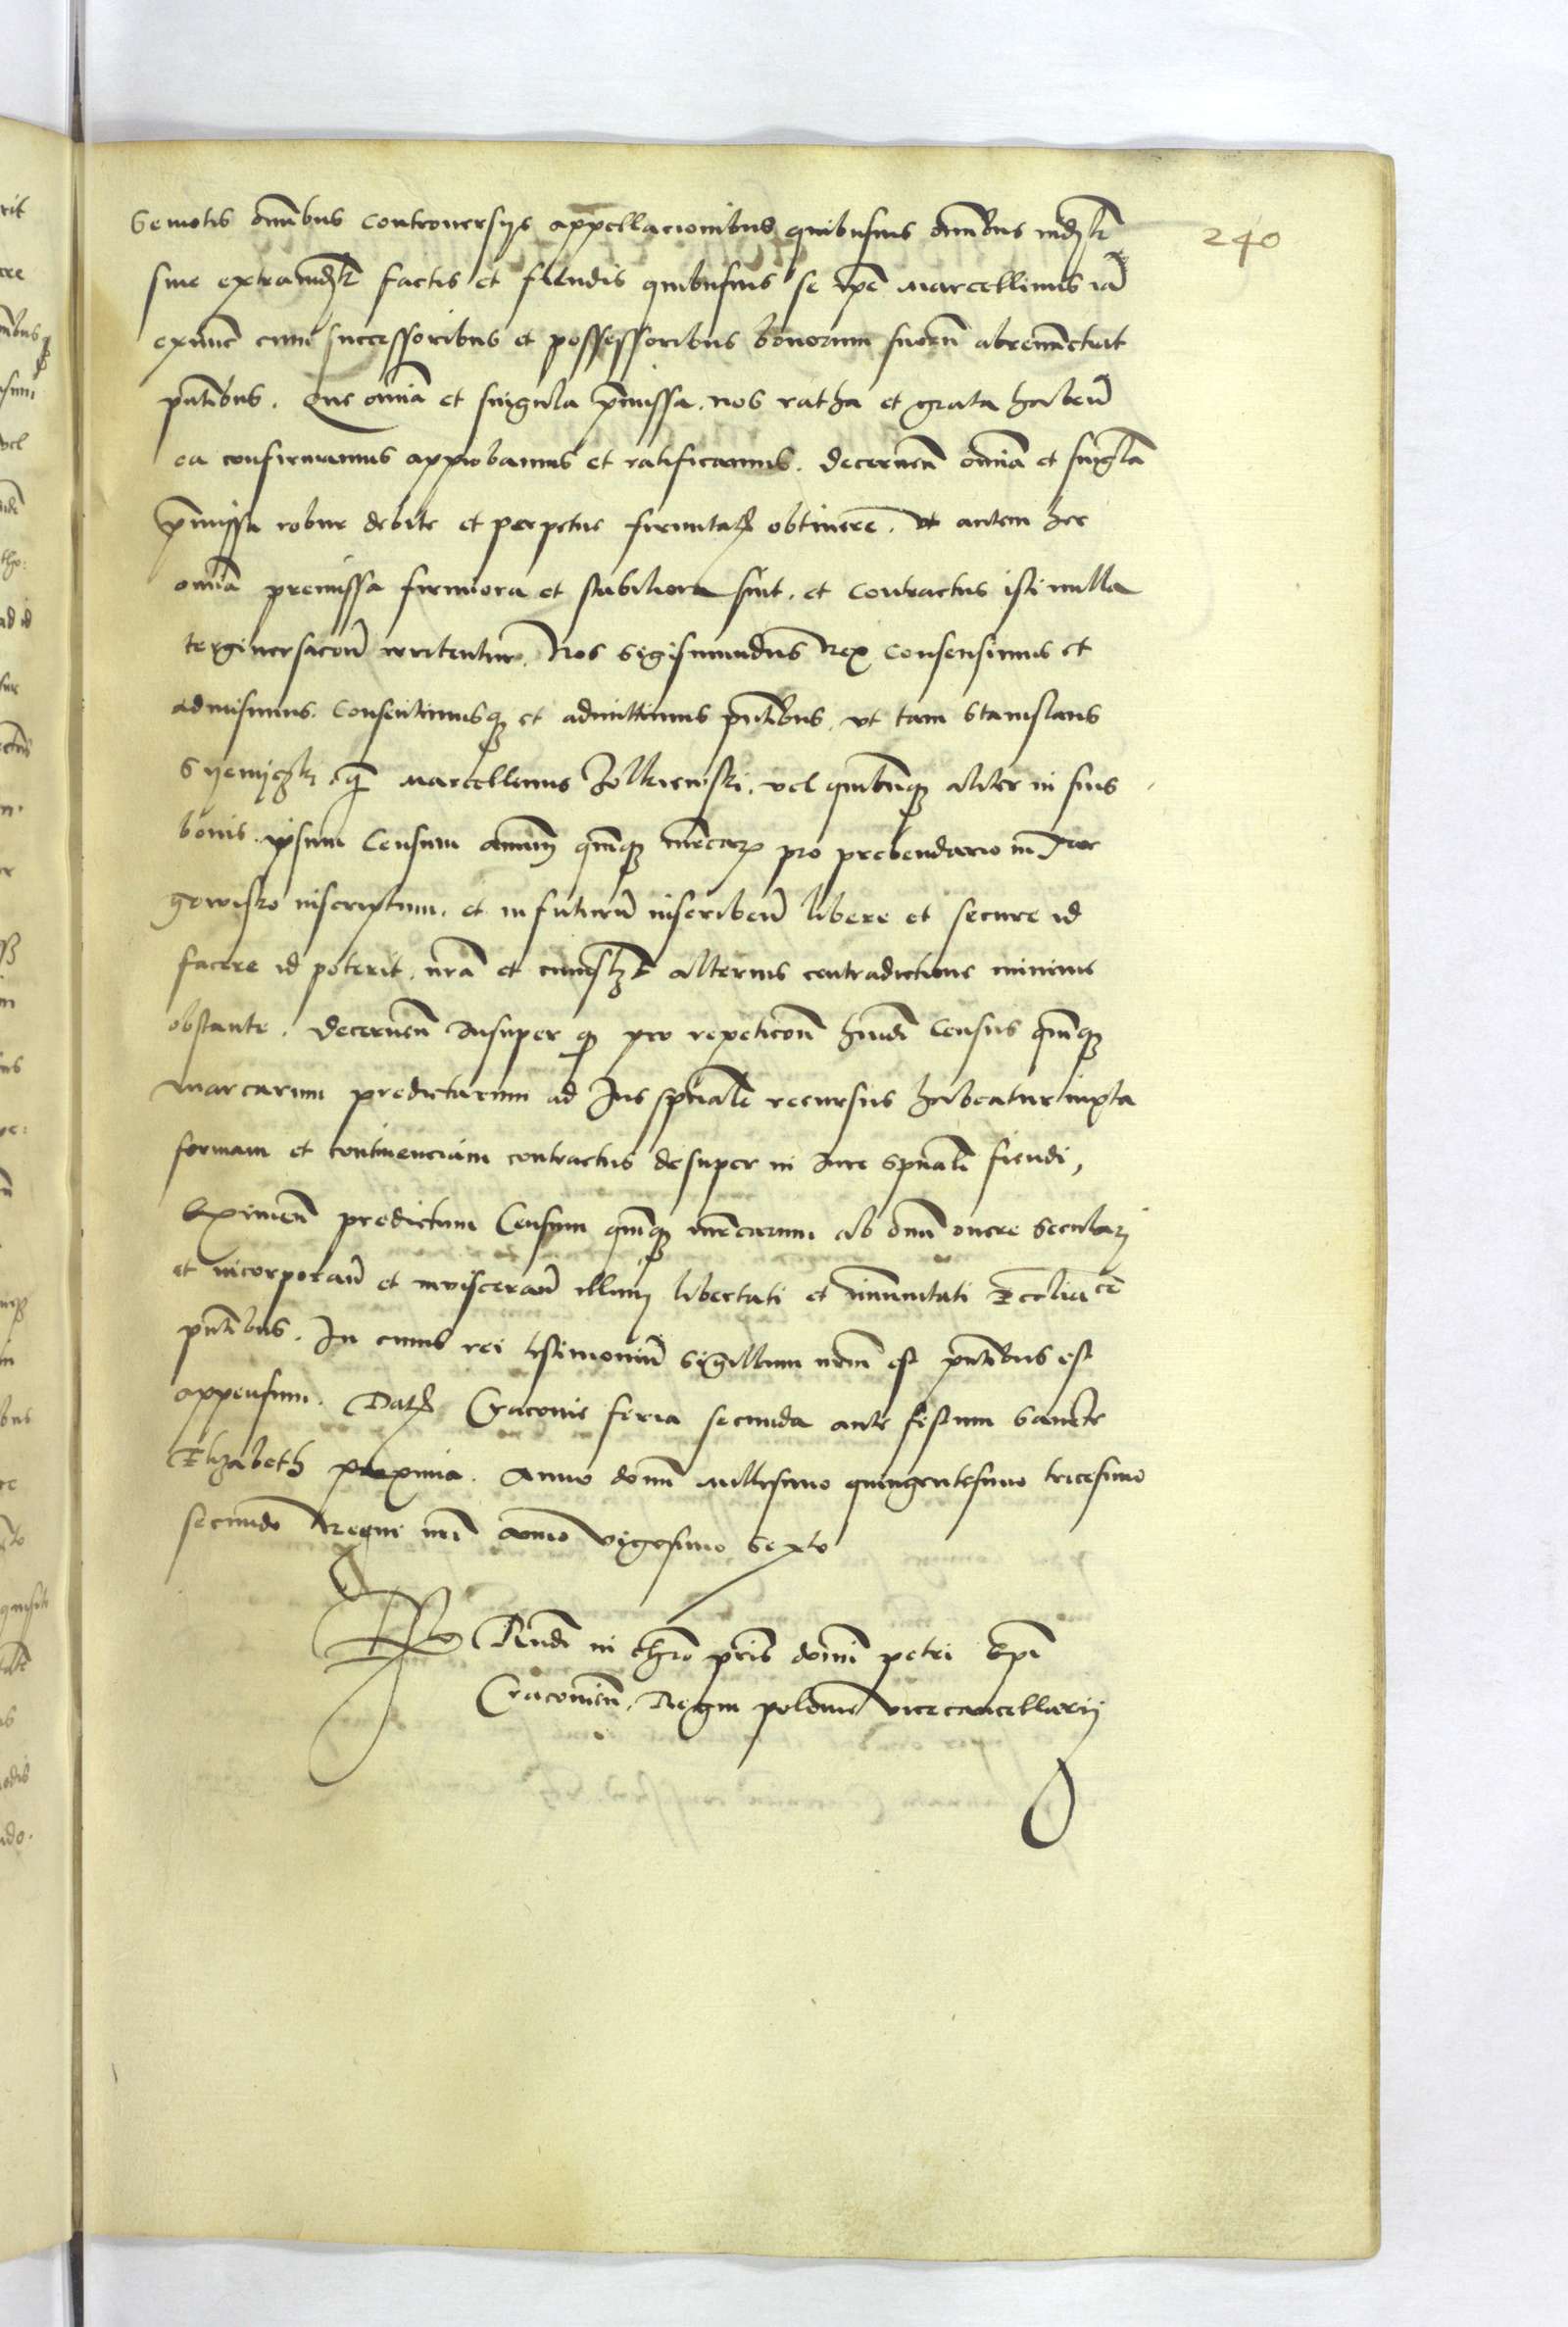 240
Semotis omibus controuersijs appellacionibus quibusuis omibus
siue extra factis et fiendis quibusuis se ipse Marcellinus
extunc cum successoribus et possessoribus bonorum suorum abrenunctiat
pntibus. Que omia et singula pmissa. nos ratha et grata haben
ea confirmamus approbamus et ratificamus. decernen omia et singla
pmissa robur debite et perpetue firmitatis obtinere. Vt autem hec
omia premissa firmiora et stabiliora sint. et contractus isti nulla
tergiuersacon irritentur. Nos Sigismundus Rex consensimus et
admisimus. Consentimusq et admittimus pntibus. vt tam Stanislaus
Syenyczki q Marcellinus Zolkiewski. vel quicunq aliter in suis
bonis ipsum Censum annuum quinq mrcarum pro prebendario in Tar
gowisko inscriptum. et in futurum inscriben libere et secure id
facere id poterit. nra et cuiuslzt alterius contradictione minime
obstante. Decernen Insuper q pro repeticon hmoi Census quinq
marcarum predictarum ad Jus spuale recursus habeatur iuxta
formam et continenciam contractus desuper in iure spuali fiendi,
Eximen predictum Censum quinq mrcarum ab omi onere seculari
et incorporan et inuisceran illum libertati et immunitati Eccliastice
pntibus. In cuius rei testimonium Sigillum nrum est pntibus est
appensum. Dat Cracouie feria secunda ante festum Sancte
Elizabeth proxima. Anno domi millesimo quingentesimo tricesimo
secundo Regni nri Anno vigesimo Sexto
Ro Rndi in chro pris domi petri Epi
Cracouien. Regni polonie vicecancellarij